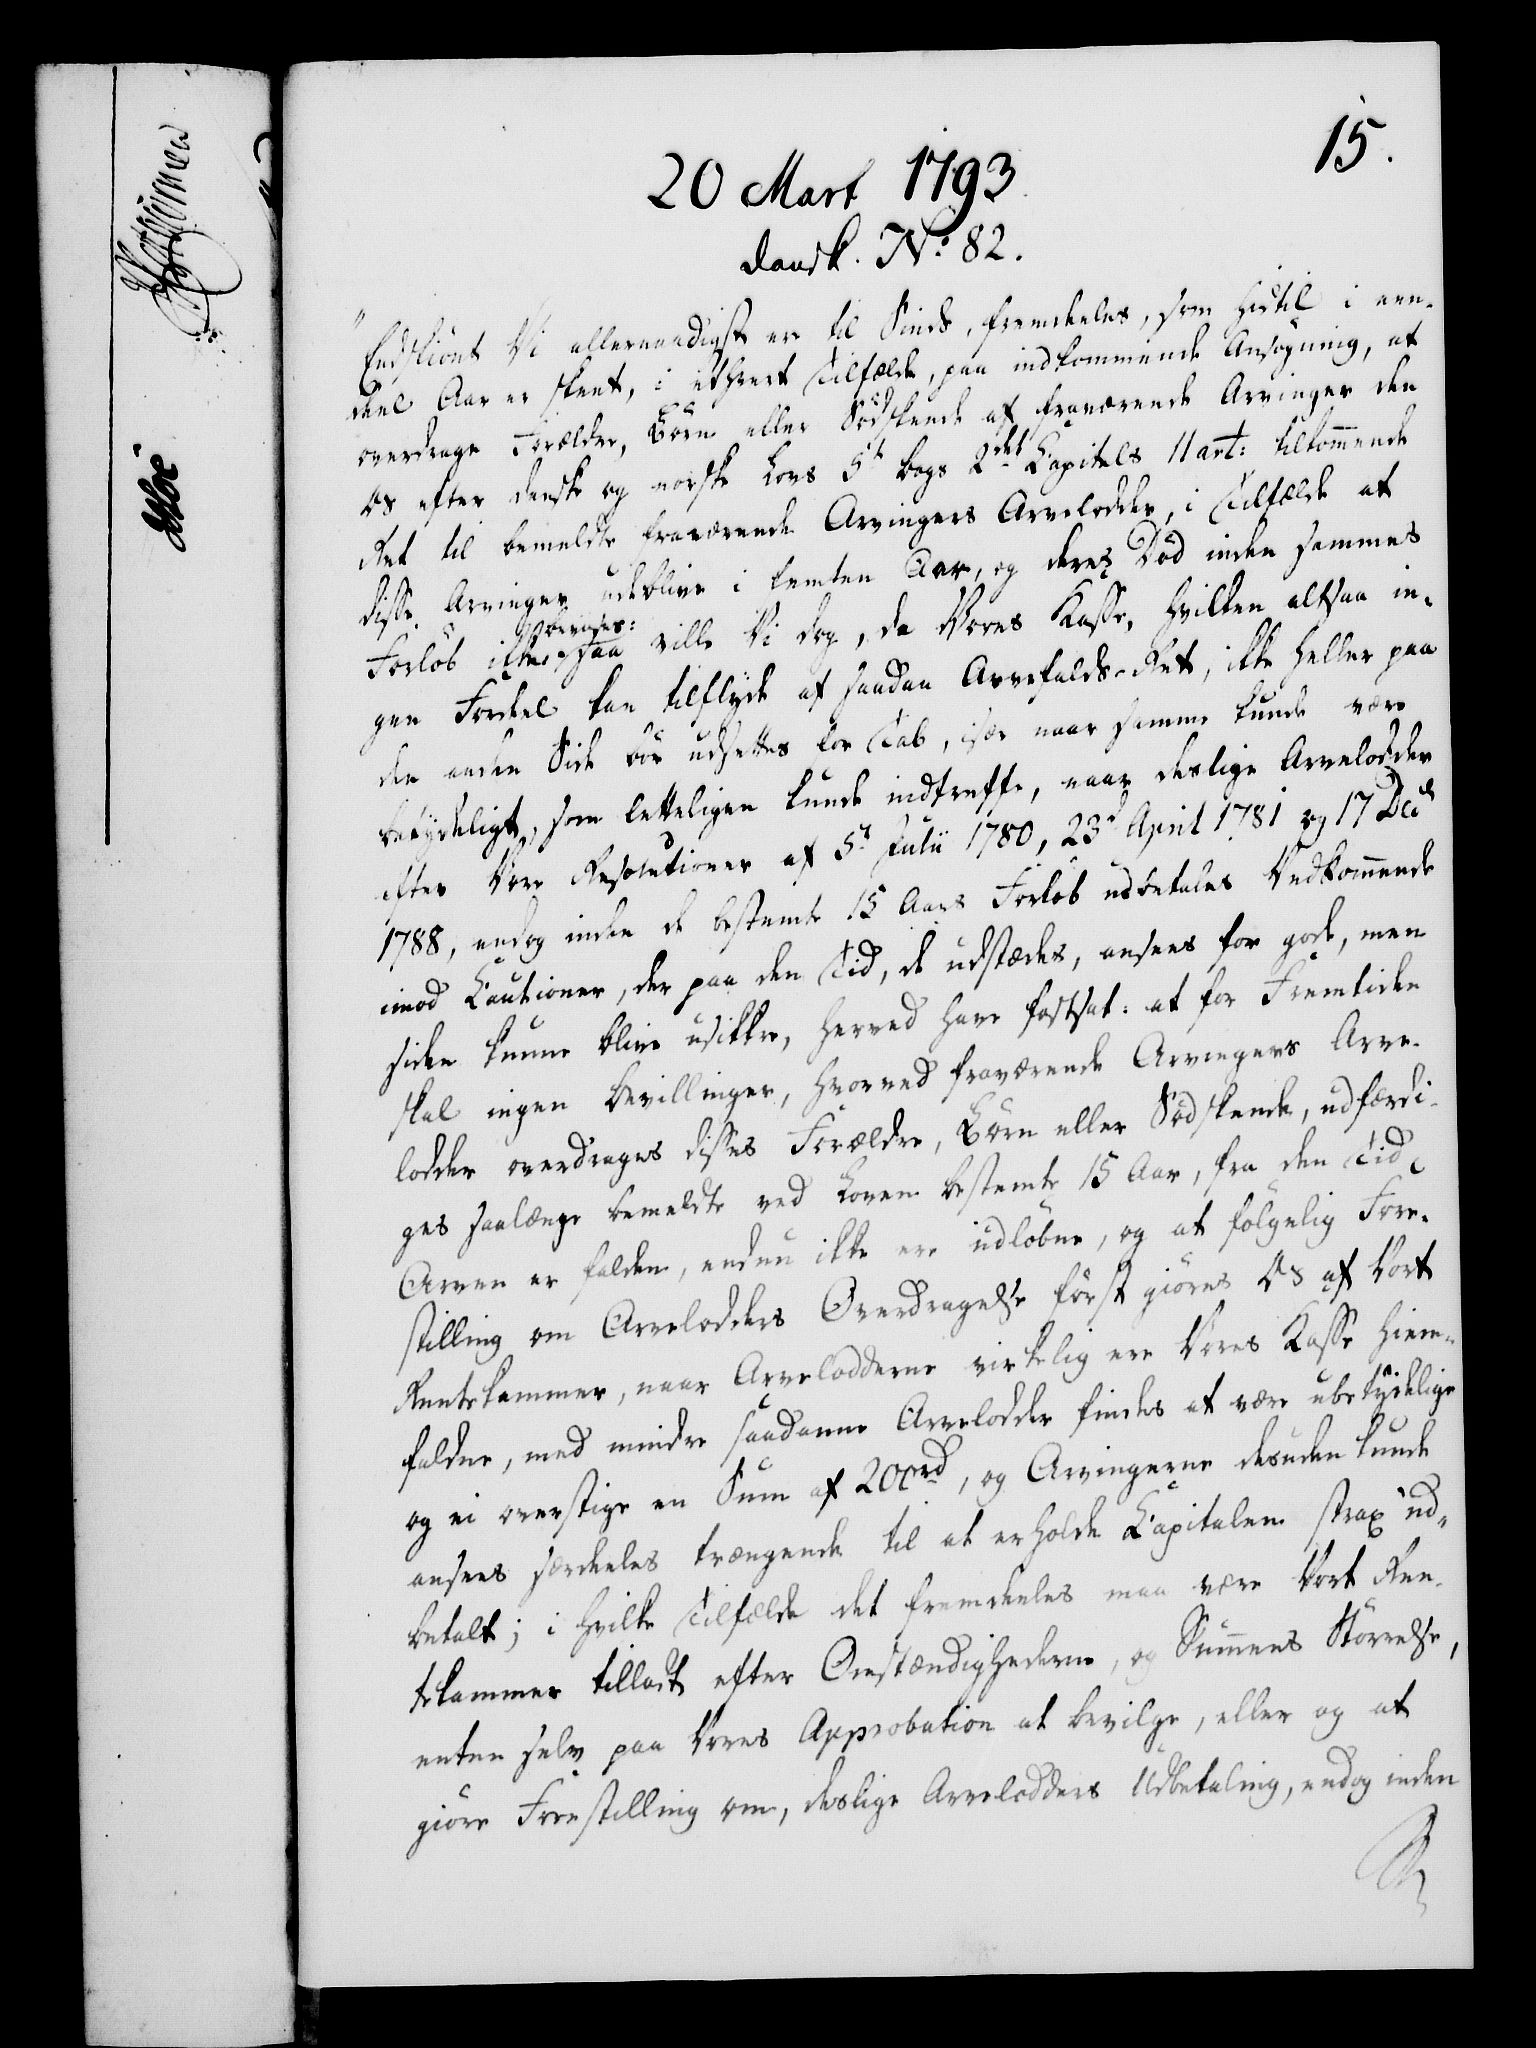 15.
20 Mart 1793
dansk. No: 82.
"Endskiönt Vi allernaadigst ere til Sinds, fremdeeles, som hidtil i een-
deel Aar er skeet, i ethvert Tilfælde, paa indkommende Ansögning, at
overdrage Forældre, Börn eller Södskende af fraværende Arvinger den
Os efter danske og norske Lovs 5te bogs 2det Capitels 11 art: tilkommende
Ret til bemeldte fraværende Arvingers Arvelodder, i Tilfælde at
disse Arvinger udeblive i femten Aar, og deres Död inden sammes
Forlöb ikke bevises: saa ville Vi dog, da Vores Kasse, hvilken altsaa in-
gen Fordeel kan tilflyde af saadan Arvefalds-Ret, ikke heller paa
den anden Side bör udsettes for Tab, især naar samme kunde være
betydeligt, som letteligen kunde indtreffe, naar deslige Arvelodder
efter Vore Resolutioner af 5t Julii 1780, 23d April 1781 og 17 Dec
1788, endog inden de bestemte 15 Aars Forlöb udbetales Vedkommende
imod Cautioner, der paa den Tid, de udstædes, ansees for gode, men
siden kunne blive usikkre, herved have fastsat: at for Fremtiden
skal ingen bevillinger, hvorved fraværende Arvingers Arve-
lodder overdrages disses Forældre, Börn eller Södskende, udfærdi-
ges saalænge bemeldte ved Loven bestemte 15 Aar, fra den Tid
Arven er falden, endnu ikke ere udlöbne, og at fölgelig Fore-
stilling om Arvelodders Overdragelse först giöres Os af Vort
Rentekammer, naar Arvelodderne virkelig ere Vores Kasse hiem-
faldne, med mindre saadanne Arvelodder findes at være ubetydelige
og ei overstige en Sum af 200rd, og Arvingerne desuden kunde
ansees særdeles trængende til at erholde Capitalen strax ud-
betalt; i hvilke Tilfælde det fremdeeles maa være Vort Ren-
tekammer tilladt efter Omstændighederne, og Summens Störrelse,
enten selv paa Vores Approbation at bevilge, eller og at
giöre Forestilling om, deslige Arvelodders Udbetaling, endog inden